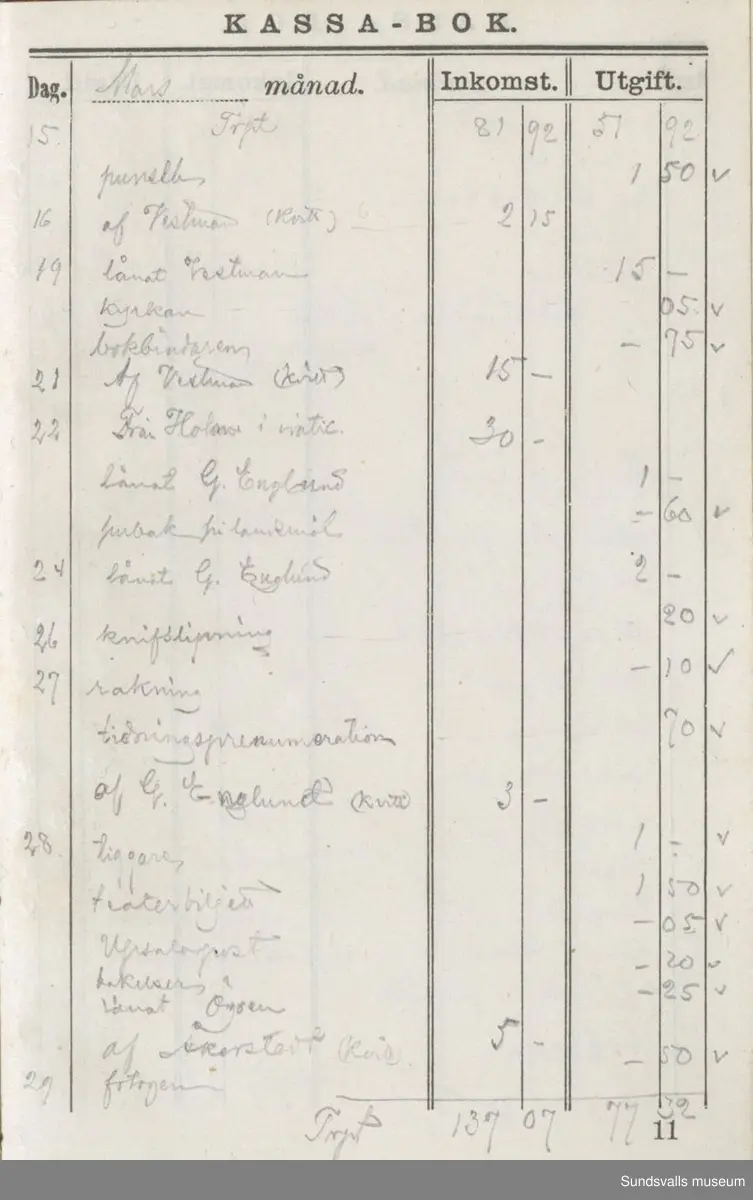 KASSA-BOK.
Dag. Mars månad. Inkomst. Utgift.
15. Trpt 81 92 51 92
punsch 1 50 v
16 af Vestman (Kvitt) 2 15
19 lånat Vestman 15 -
kyrkan 05. v
bokbindaren - 75 v
21 Af Vestman (Kvitt) 15 -
22 Från Holm i viatic. 30 -
lånat G. Englund 1 -
landsmål - 60 v
24 lånat G. Englund 2 -
26 knifslipning 20 v
27 rakning - 10 v
tidningsprenumeration 70 v
af G. Englund (Kvitt) 3 -
28. tiggare 1 - v
teaterbiljett 1 50 v
Upsalapost - 05 v
bakelser - 20 v
lånat - 25 v
af Åkerstedt (Kvitt) 5 -
29 fotogen - 50 v
Trpt 137 07 77 32
11
Sundsvalls museum